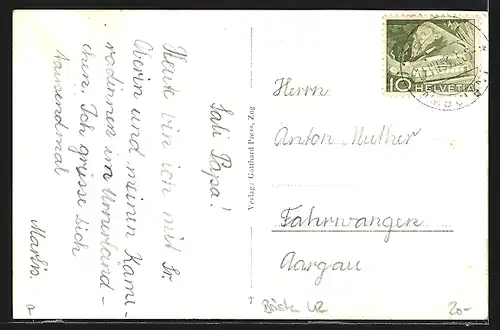 Sali Papa!
Heute bin ich mit Sr.
Oberin und meinen Kame-
radinnen im Urnerland-
chen. Ich grüsse Dich
tausendmal
Marlis.
Verlag: Gotthard Press, Zug
HELVETIA
10
Herrn
Anton Muther
Fahrwangen
Aargau
20-